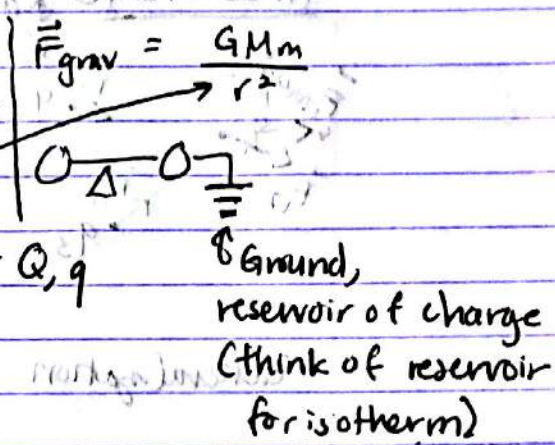 F⃗grav = GMm / r²
Δ
Q, q
Ground,
reservoir of charge
(think of reservoir
for isotherm)